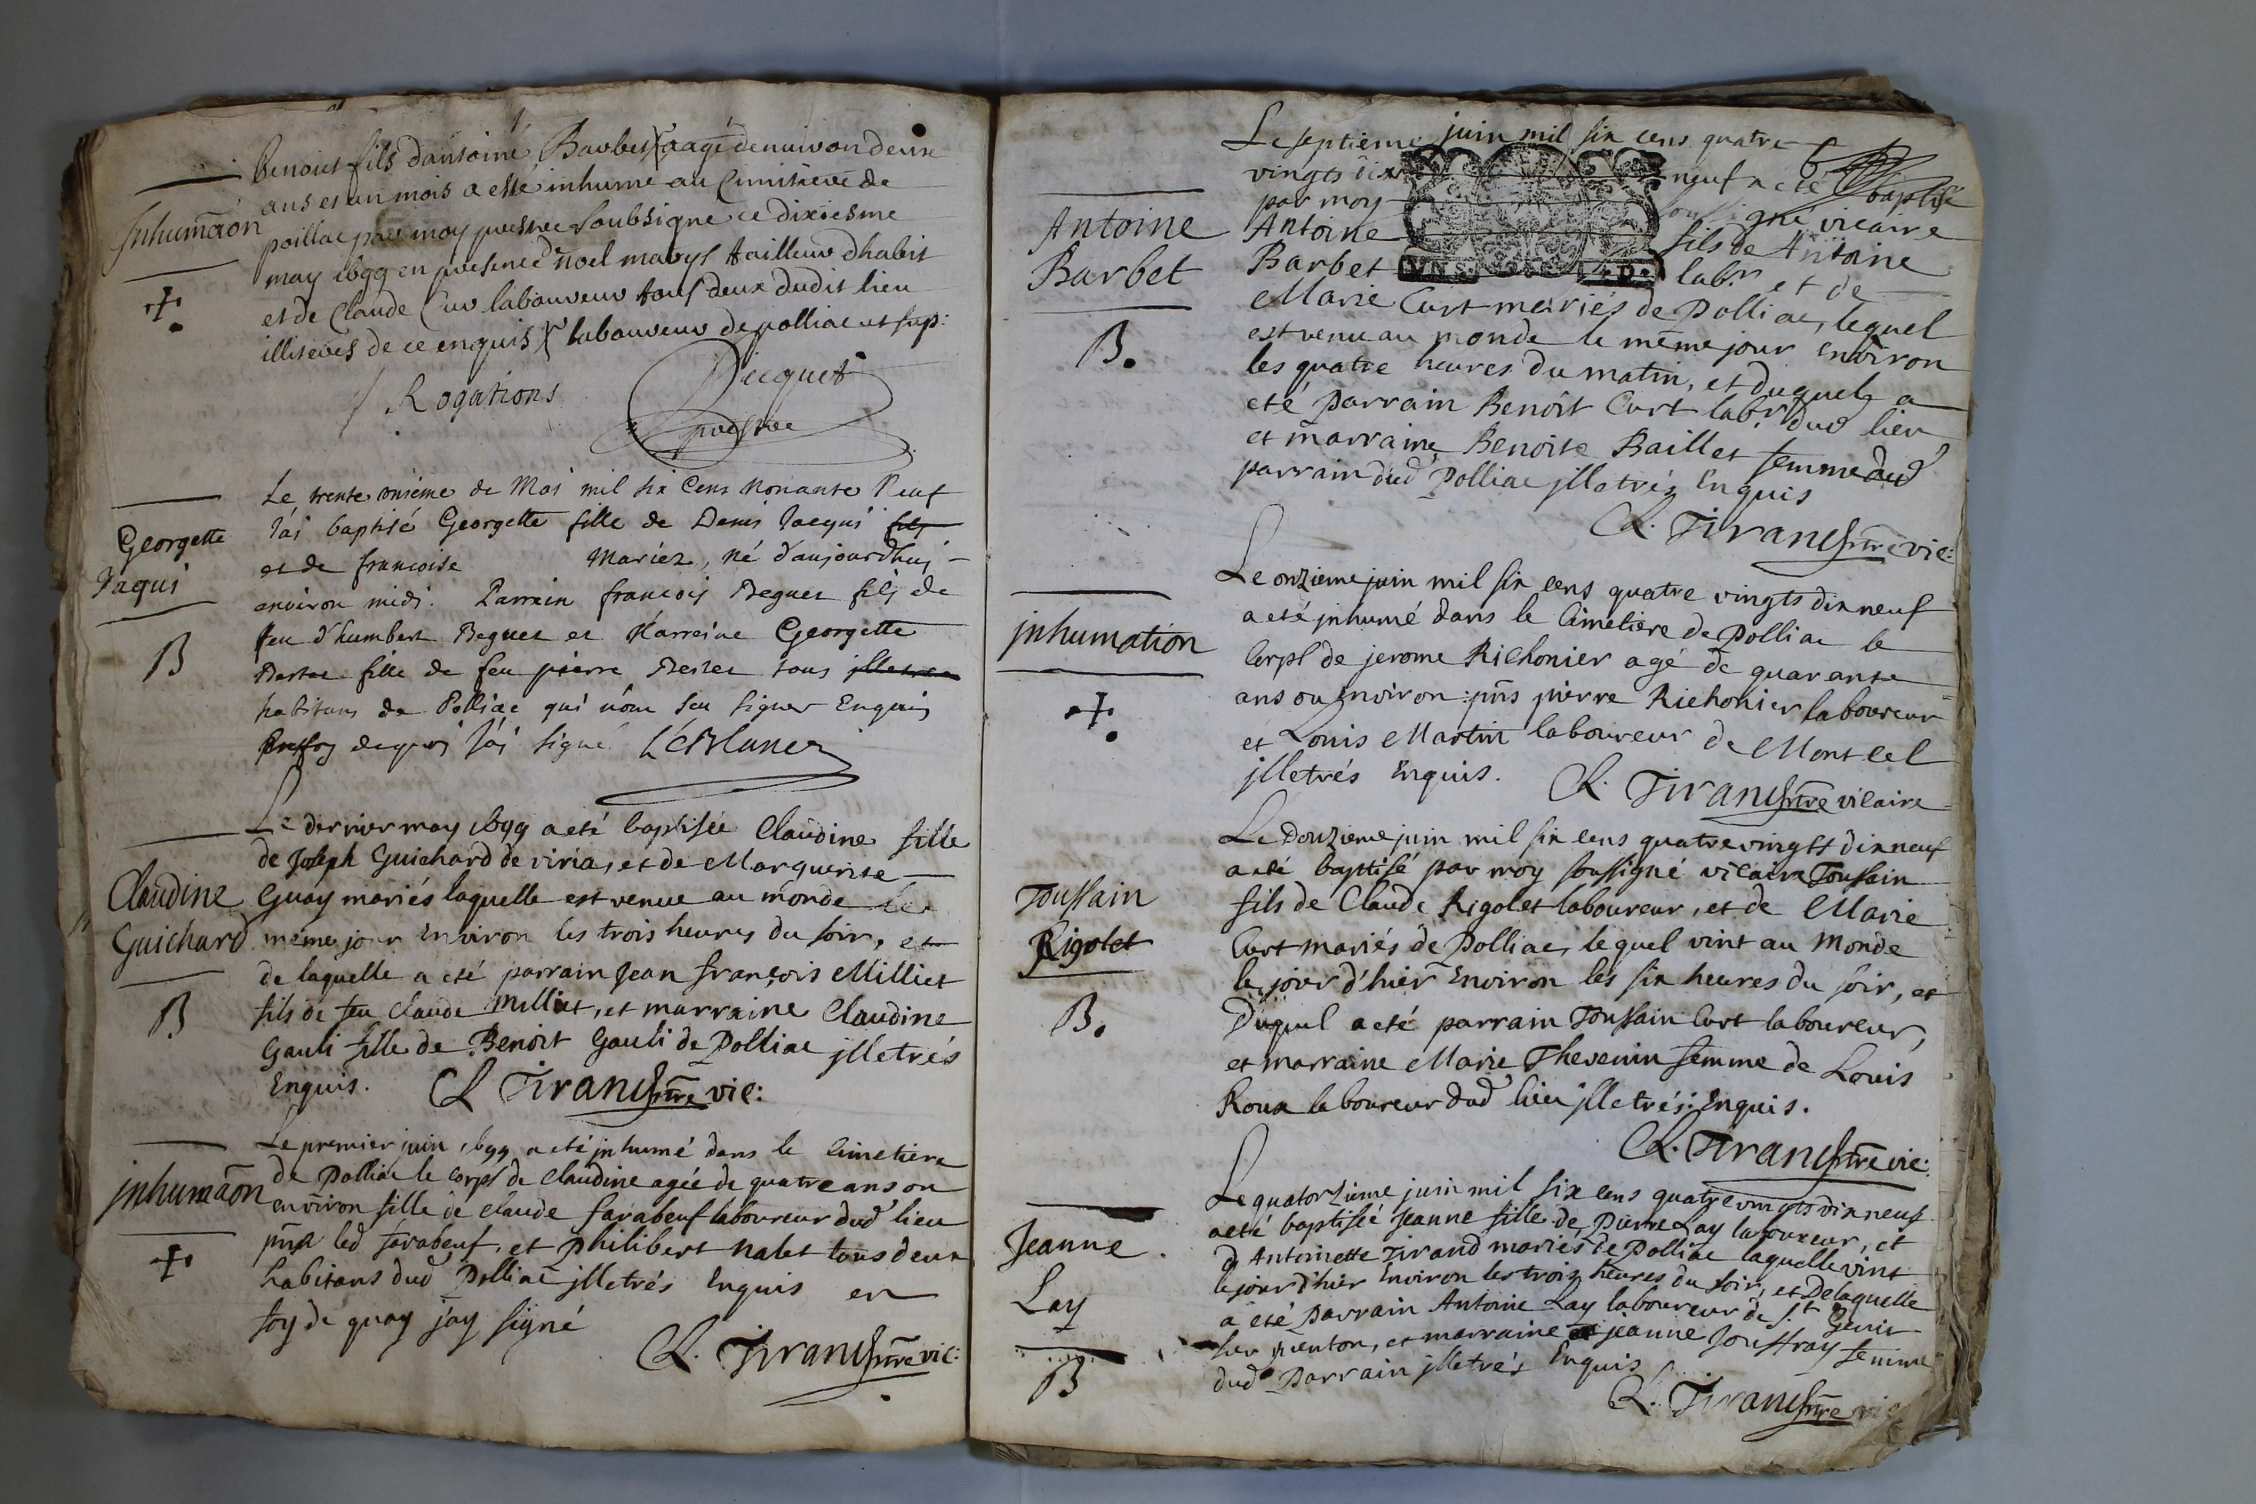 Inhumaon
Benoict fils dantoine Barbet aagé denviron deux
ans et un mois a esté inhumé au Cimitieve de
poilliac par moy prestre soubsigné ce dixiesme
may 1699 en presence noel maryl tailleur dhabit
et de Claude Cur laboureur tous deux dudit lieu
illiteres de ce enquis laboureur de polliac ut sup:
Rogations
Picquet
prestre
Georgette
Jaqui
B
Le trente onsiéme de Mai mil six Cens Nonante Neuf
J'ai baptisé Georgette fille de Denis Jacqui
et de francoise Mariez, né d'aujourdhuj
environ midi. Parrain francois Beguet fils de
feu d'humbert Beguet et Marreine Georgette
fille de feu pierre tous illetrez
habitans de Polliac qui n'ont seu signer Enquis
dequoi J'ai signé LéBlanc
Claudine
Guichard
B
Le dernier may 1699 a eté baptisée Claudine fille
de Joseph Guichard de viria, et de Marguerite
Guay mariés laquelle est venue au monde le
méme jour Environ les trois heures du soir, et
de laquelle a eté parrain Jean françois Milliet
fils de feu Claude Milliet, et marraine Claudine
Gauli fille de Benoit Gauli de Polliac jlletrés
Enquis. C. Tirand prtre vic:
jnhumaon
Le premier juin 1699 a eté jnhumé dans le Cimetiere
de Polliac le corps de Claudine agée de quatre ans ou
environ fille de Claude farabeuf laboureur dud' lieu
pns led farabeuf, et Philibert Nalet tous deux
habitans dud Polliac jlletrés Enquis en
foy de quoy j'ay signé
C. Tirand prtre vic:
Antoine
Barbet
B.
Le septieme juin mil six cens quatre
vingts dix neuf a eté baptisé
par moy soussigné vicaire
Antoine fils de Antoine
Barbet labr. et de
VNS. 4.D.
Marie Curt mariés de Polliac, lequel
est venu au monde le méme jour Environ
les quatre heures du matin, et duquel a
eté parrain Benoit Curt labr. dud lieu
et marraine Benoite Baillet femme dud
parrain dud Polliac jlletrés Enquis
C. Tirand prtre vic:
jnhumation
Le onzieme juin mil six cens quatre vingts dix neuf
a eté jnhumé dans le Cimetiere de Polliac le
Corps de jerome Richonier agé de quarante
ans ou Environ: pns pierre Richonier laboureur
et Louis Martin laboureur de Montcel
jlletrés Enquis. C. Tirand prtre vicaire
Toussain
Rigolet
B.
Le Douzieme juin mil six cens quatre vingts dix neuf
a eté baptisé par moy soussigné vicaire Toussain
fils de Claude Rigolet laboureur, et de Marie
Curt mariés de Polliac, lequel vint au Monde
le jour d'hier Environ les six heures du soir, et
Duquel a eté parrain Toussain Curt laboureur,
et marraine Marie Thevenin femme de Louis
Roux laboureur dud lieu jlletrés Enquis.
C. Tirand prtre vic:
Jeanne
Lay
B
Le quatorzieme juin mil six cens quatre vingts dix neuf
a eté baptisée Jeanne fille de Pierre Lay laboureur, et
d'Antoinette Tirand mariés de Polliac laquelle vint
le jour d'hier Environ les trois heures du soir, et De laquelle
a eté Parrain Antoine Lay laboureur de St Genit
sur menton, et marraine jeanne Jouffray femme
dud Parrain jlletrés Enquis
C. Tirand prtre vic